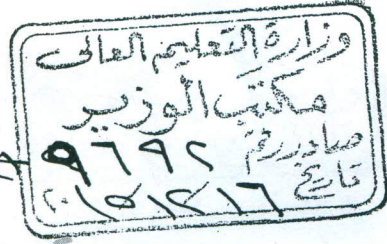 وزارة التعليم العالى
مكتب الوزير
صادر رقم ٩٦٩٢
تاريخ ١٦ / ١٢ / ٢٠١٥